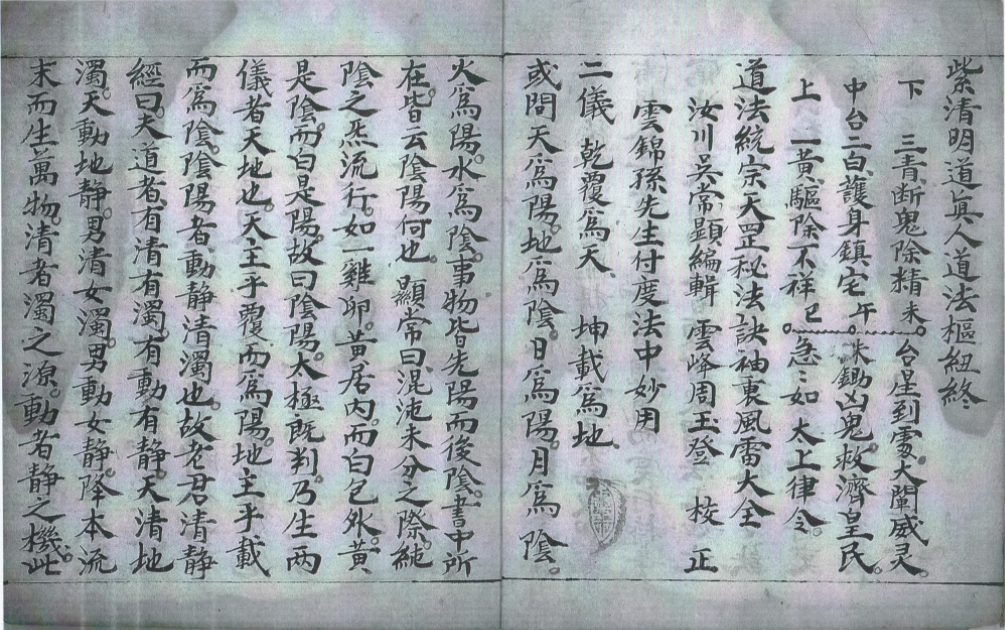 紫清明道眞人道法樞紐終
下　三青断鬼除精未　台星到處大闡威灵
中台二白護身鎮宅午　朱鋤凶鬼救濟皇民
上　一黃驅除不祥巳　急〻如　太上律令
道法統宗天罡秘法訣袖裏風雷大全
汝川吳常顯編輯　雲峰周玉登　校正
雲錦孫先生付度法中妙用
二儀　乾覆爲天　坤載爲地
或問天爲陽地爲陰日爲陽月爲陰
火爲陽水爲陰事物皆先陽而後陰書中所
在皆云陰陽何也　顯常曰混沌未分之際純
陰之炁流行如一雞卵黃居內而白包外黃
是陰而白是陽故曰陰陽太極旣判乃生两
儀者天地也天主乎覆而爲陽地主乎載
而爲陰陰陽者動静清濁也故老君清静
經曰夫道者有清有濁有動有静天清地
濁天動地静男清女濁男動女静降本流
末而生萬物清者濁之源動者静之機此